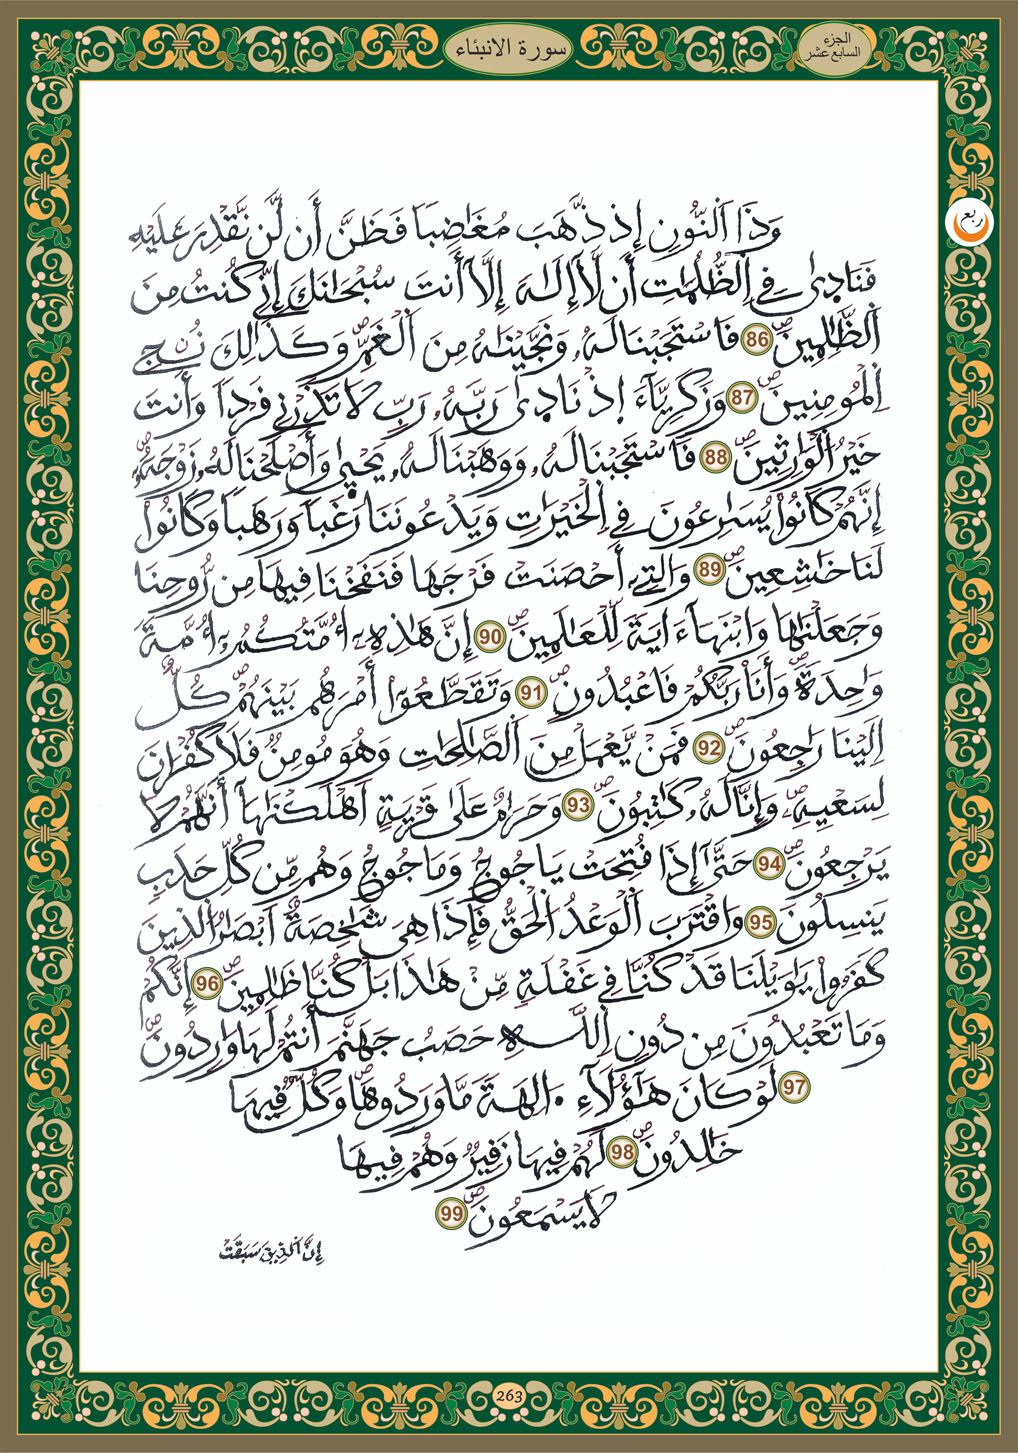 سورة الانبئاء
الجزء
السابع عشر
ربع
وَذَا اَلنُّونِ إِذ ذَّهَبَ مُغَٰضِباً فَظَنَّ أَن لَّن نَّقْدِرَ عَلَيْهِ
فَنَادِىٰ فِے اِلظُّلُمَٰتِ أَن لَّا إِلَٰهَ إِلَّا أَنتَ سُبْحَٰنَكَ إِنِّے كُنتُ مِنَ
اَلظَّٰلِمِينَۖ 86 فَاسْتَجَبْنَا لَهُۥ وَنَجَّيْنَٰهُ مِنَ اَلْغَمِّۖ وَكَذَٰلِكَ نُۨجِے
اِلْمُومِنِينَۖ 87 وَزَكَرِيَّاءَ إِذْ نَادِىٰ رَبَّهُۥ رَبِّ لَا تَذَرْنِے فَرْداً وَأَنتَ
خَيْرُ اُلْوَٰرِثِينَۖ 88 فَاسْتَجَبْنَا لَهُۥ وَوَهَبْنَا لَهُۥ يَحْيِىٰ وَأَصْلَحْنَا لَهُۥ زَوْجَهُۥۖ
إِنَّهُمْ كَانُواْ يُسَٰرِعُونَ فِے اِلْخَيْرَٰتِ وَيَدْعُونَنَا رَغَباً وَرَهَباً وَكَانُواْ
لَنَا خَٰشِعِينَۖ 89 وَالتِے أَحْصَنَتْ فَرْجَهَا فَنَفَخْنَا فِيهَا مِن رُّوحِنَا
وَجَعَلْنَٰهَا وَابْنَهَا ءَايَةً لِّلْعَٰلَمِينَۖ 90 إِنَّ هَٰذِهِۦ أُمَّتُكُمُۥ أُمَّةً
وَٰحِدَةًۖ وَأَنَا رَبُّكُمْ فَاعْبُدُونِۖ 91 وَتَقَطَّعُواْ أَمْرَهُم بَيْنَهُمْۖ كُلٌّ
اِلَيْنَا رَٰجِعُونَۖ 92 فَمَنْ يَّعْمَلْ مِنَ اَلصَّٰلِحَٰتِ وَهُوَ مُومِنٌ فَلَا كُفْرَانَ
لِسَعْيِهِۦۖ وَإِنَّا لَهُۥ كَٰتِبُونَۖ 93 وَحَرَٰمٌ عَلَىٰ قَرْيَةٍ اَهْلَكْنَٰهَا أَنَّهُمْ لَا
يَرْجِعُونَۖ 94 حَتَّىٰ إِذَا فُتِحَتْ يَاجُوجُ وَمَاجُوجُ وَهُم مِّن كُلِّ حَدَبٍ
يَنسِلُونَ 95 وَاقْتَرَبَ اَلْوَعْدُ اُلْحَقُّ فَإِذَا هِىَ شَٰخِصَةٌ اَبْصَٰرُ اُلذِينَ
كَفَرُواْ يَٰوَيْلَنَا قَدْ كُنَّا فِے غَفْلَةٍ مِّنْ هَٰذَا بَلْ كُنَّا ظَٰلِمِينَۖ 96 إِنَّكُمْ
وَمَا تَعْبُدُونَ مِن دُونِ اِللَّهِ حَصَبُ جَهَنَّمَ أَنتُمْ لَهَا وَٰرِدُونَۖ
97 لَوْ كَانَ هَٰؤُلَاءِ ءَالِهَةً مَّا وَرَدُوهَاۖ وَكُلٌّ فِيهَا
خَٰلِدُونَۖ 98 لَهُمْ فِيهَا زَفِيرٌ وَهُمْ فِيهَا
لَا يَسْمَعُونَۖ 99
إِنَّ اَلذِينَ سَبَقَتْ
263